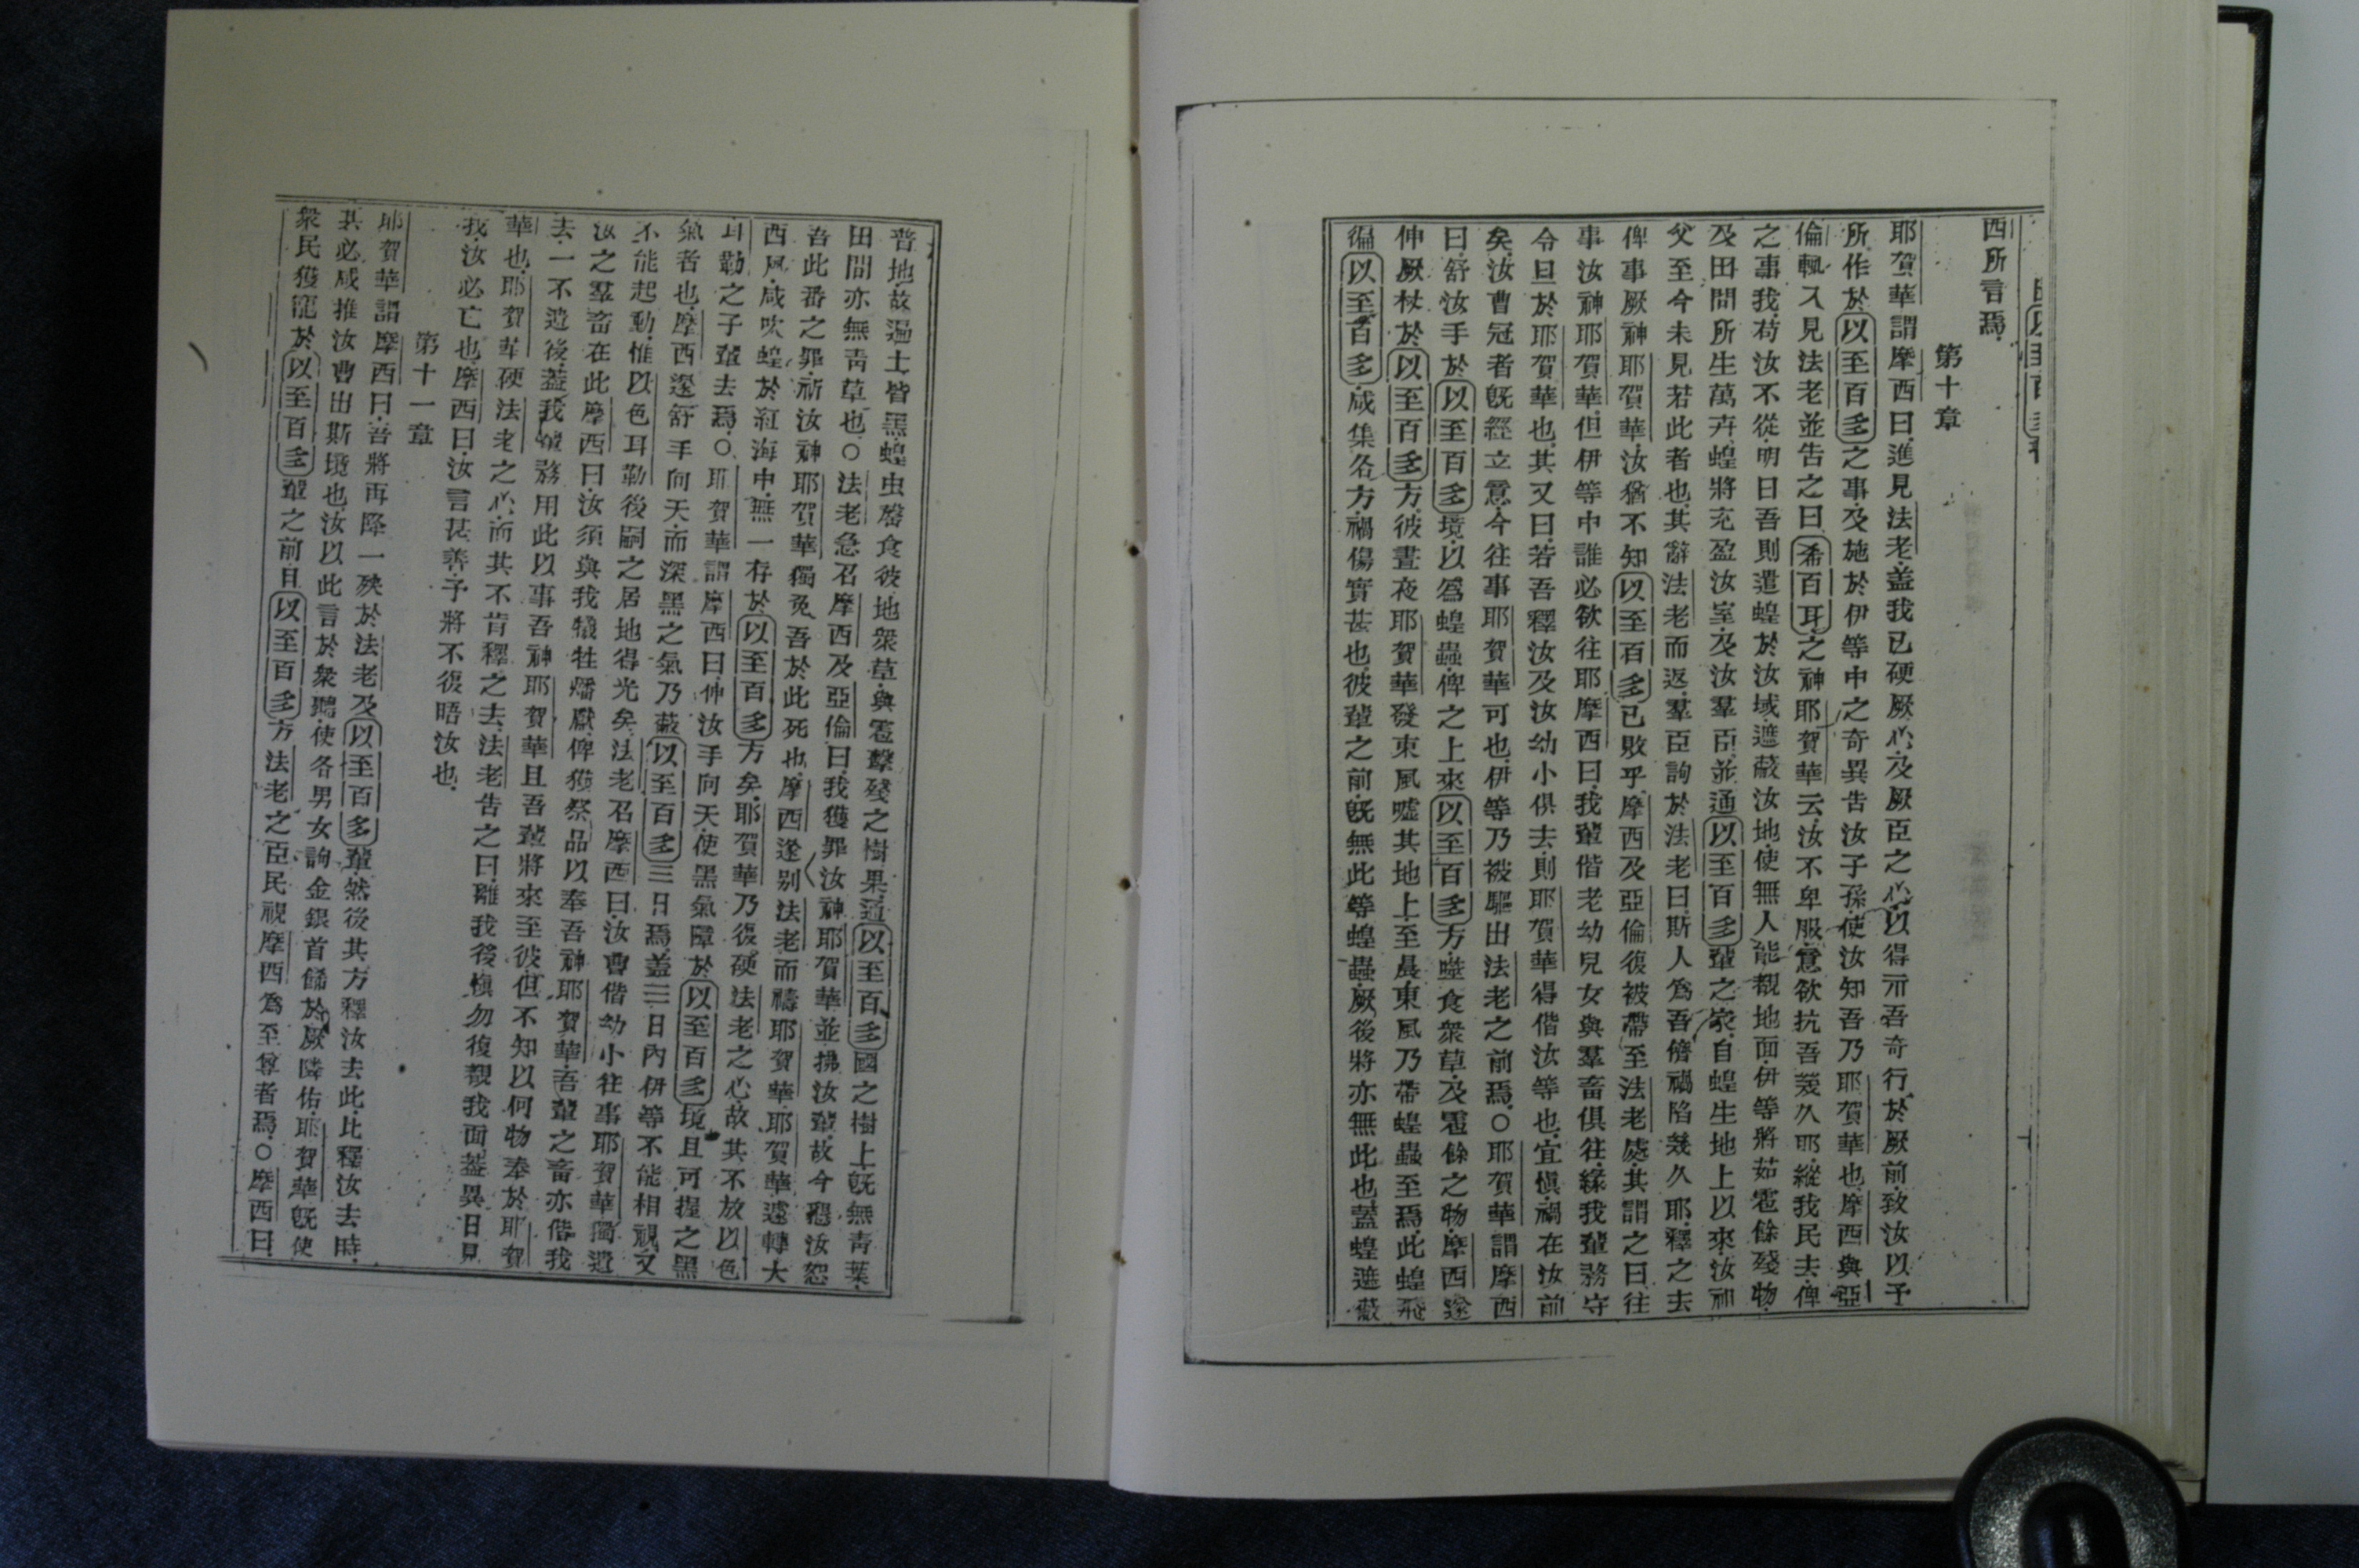 西所言焉
第十章
耶賀華謂摩西曰進見法老盖我已硬厥心及厥臣之心以得示吾奇行於厥前致汝以予
所作於以至百多之事及施於伊等中之奇異告汝子孫使汝知吾乃耶賀華也摩西與亞
倫輒入見法老並告之曰希百耳之神耶賀華云汝不卑服意欲抗吾幾久耶縱我民去俾
之事我苟汝不從明日吾則遣蝗於汝域遮蔽汝地使無人能覩地面伊等將茹雹餘殘物
及田間所生萬卉蝗將充盈汝室及汝羣臣並通以至百多輩之家自蝗生地上以來汝祖
父至今未見若此者也其辭法老而返羣臣詢於法老曰斯人為吾儕禍陷幾久耶釋之去
俾事厥神耶賀華汝猶不知以至百多已敗乎摩西及亞倫復被帶至法老處其謂之曰往
事汝神耶賀華但伊等中誰必欲往耶摩西曰我輩偕老幼兒女與羣畜俱往緣我輩務守
令旦於耶賀華也其又曰若吾釋汝及汝幼小俱去則耶賀華得偕汝等也宜愼禍在汝前
矣汝曹冠者旣經立意今往事耶賀華可也伊等乃被驅出法老之前焉○耶賀華謂摩西
曰舒汝手於以至百多境以為蝗蟲俾之上來以至百多方噬食衆草及雹餘之物摩西遂
伸厥杖於以至百多方彼晝夜耶賀華發東風噓其地上至晨東風乃帶蝗蟲至焉此蝗飛
徧以至百多咸集各方禍傷實甚也彼輩之前旣無此等蝗蟲厥後將亦無此也蓋蝗遮蔽
普地故遍土皆黑蝗虫磬食彼地衆草與雹擊殘之樹果這以至百多國之樹上旣無青葉
田間亦無青草也○法老急召摩西及亞倫曰我獲罪汝神耶賀華並拂汝輩故今懇汝恕
吾此番之罪祈汝神耶賀華獨免吾於此死也摩西遂别法老而禱耶賀華耶賀華遽轉大
西風咸吹蝗於紅海中無一存於以至百多方矣耶賀華乃復硬法老之心故其不放以色
耳勒之子輩去焉○耶賀華謂摩西曰伸汝手向天使黑氣障於以至百多境且可握之黑
氣者也摩西遂舒手向天而深黑之氣乃蔽以至百多三日焉盖三日內伊等不能相視又
不能起動惟以色耳勒後嗣之居地得光矣法老召摩西曰汝曹偕幼小往事耶賀華獨遺
汝之羣畜在此摩西曰汝須與我犧牲燔獻俾獲祭品以奉吾神耶賀華吾輩之畜亦偕我
去一不遺後蓋我輩務用此以事吾神耶賀華且吾輩將來至彼但不知以何物奉於耶賀
華也耶賀華硬法老之心而其不肯釋之去法老告之曰離我後愼勿復覩我面蓋異日見
我汝必亡也摩西曰汝言甚善予將不復晤汝也
第十一章
耶賀華謂摩西曰吾將再降一殃於法老及以至百多輩然後其方釋汝去此比釋汝去時
其必咸推汝曹出斯境也汝以此言於衆聽使各男女詢金銀首餙於厥隣佑耶賀華旣使
衆民獲寵於以至百多輩之前且以至百多方法老之臣民視摩西為至尊者焉○摩西曰